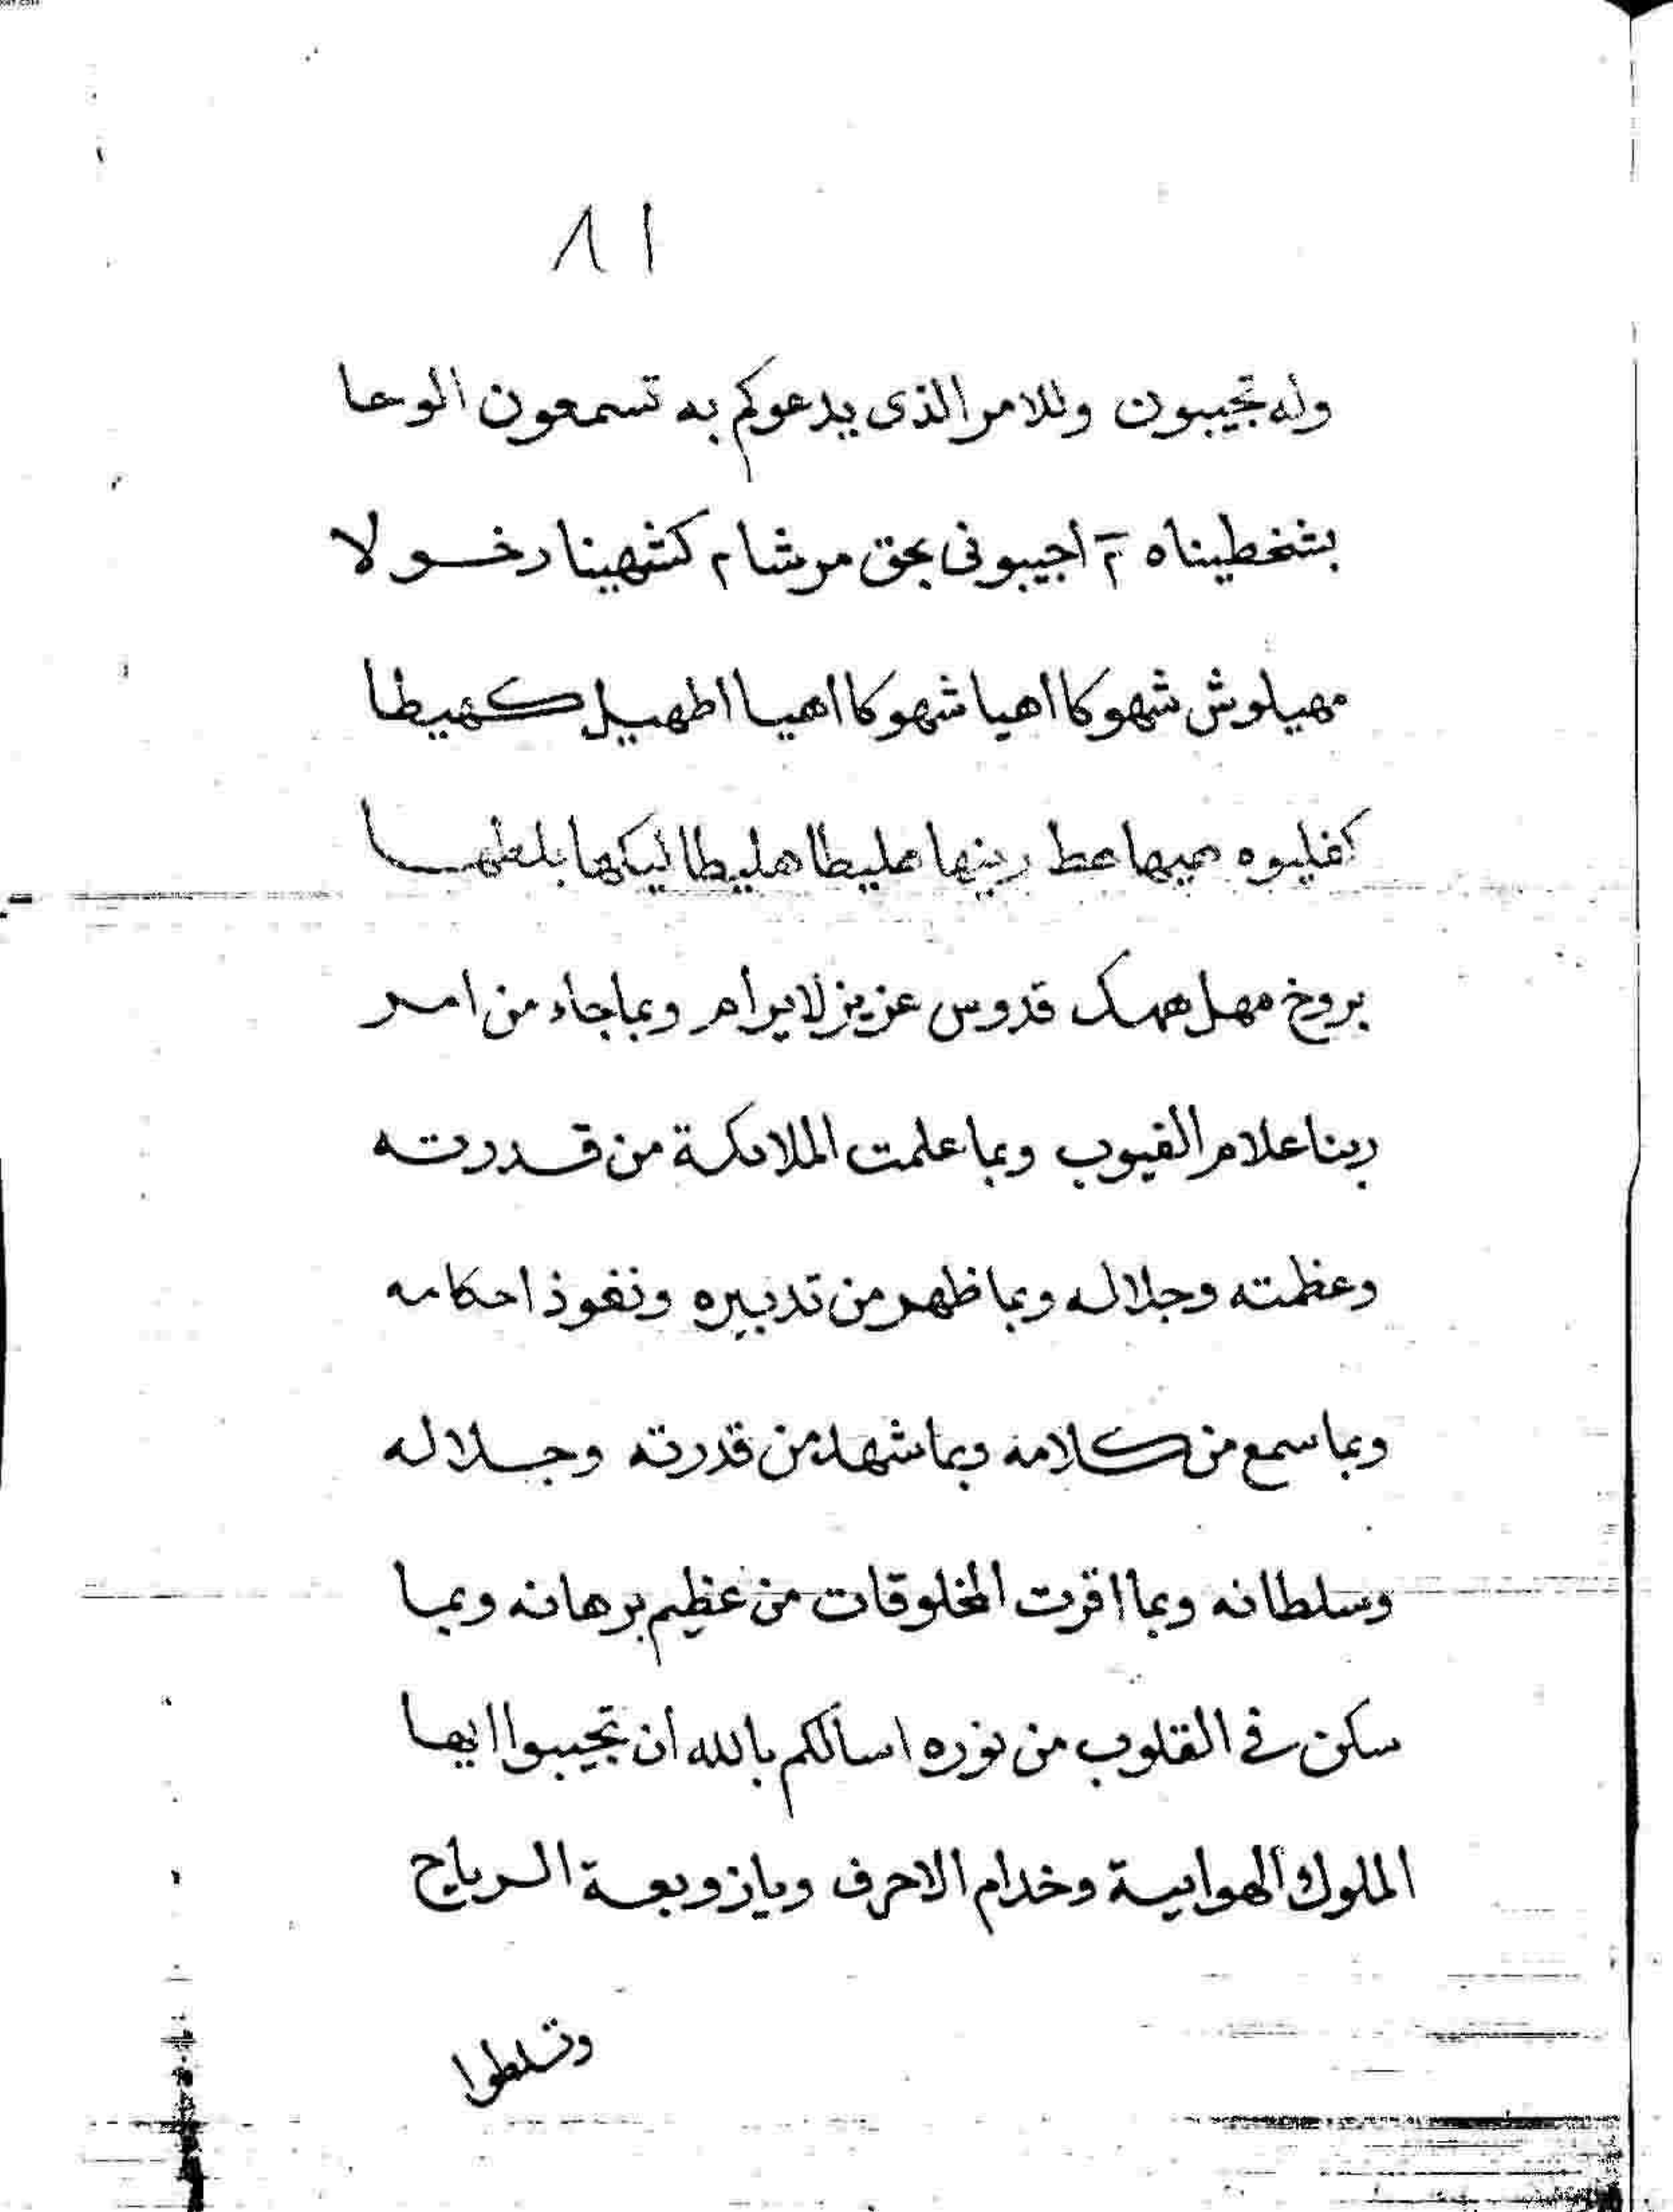 ٨١
وله تجيبون وللامر الذى يدعوكم به تسمعون الوحا
بشخطيناه ٢ اجيبونى بحق مرشام كشهينا رخولا
مهيلوش شهوكا اهيا شهوكا اهيا اطهيل كهيطا
هليطا هليطا ليكها بلطها
بروخ مهل همك قدوس عزيز لا يرام وبما جاء من امر
ربنا علام الغيوب وبما علمت الملائكة من قدرته
وعظمته وجلاله وبما ظهر من تدبيره ونفوذ احكامه
وبما سمع من كلامه وبما شهد من قدرته وجلاله
وسلطانه وبما اقرت المخلوقات من عظيم برهانه وبما
سكن فى القلوب من نوره اسالكم بالله أن تجيبوا ايها
الملوك الهوايية وخدام الاحرف ويا زوبعة الرياح
وتسلطوا